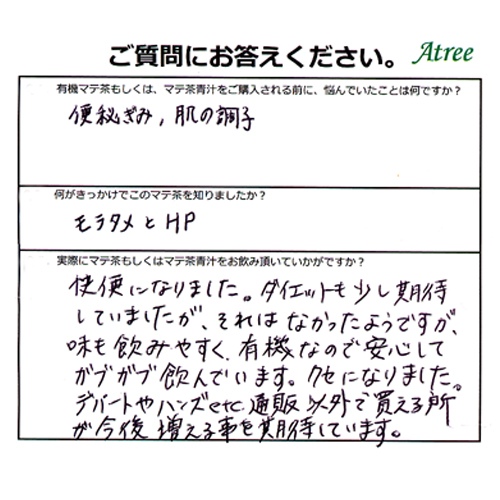 ご質問にお答えください。 Atree
有機マテ茶もしくは、マテ茶青汁をご購入される前に、悩んでいたことは何ですか？
便秘ぎみ，肌の調子
何がきっかけでこのマテ茶を知りましたか？
モラタメとHP
実際にマテ茶もしくはマテ茶青汁をお飲み頂いていかがですか？
快便になりました。ダイエットも少し期待
していましたが、それはなかったようですが、
味も飲みやすく、有機なので安心して
ガブガブ飲んでいます。クセになりました。
デパートやハンズetc通販以外で買える所
が今後増える事を期待しています。